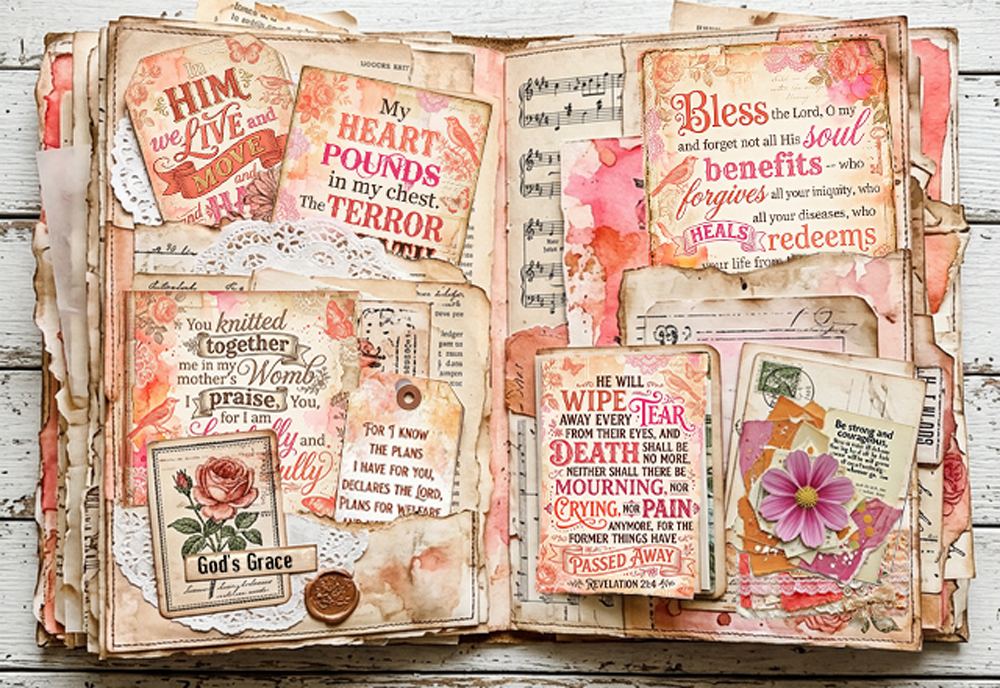 In
HIM
we LIVE and
MOVE
and
My
HEART
POUNDS
in my chest.
The TERROR
You knitted
together
me in my
mother's Womb
I praise, You,
for I am
and
God's Grace
FOR I KNOW
THE PLANS
I HAVE FOR YOU,
DECLARES THE LORD,
PLANS FOR WELFARE
ledger
Bless the Lord, O my
and forget not all His soul
benefits -- who
forgives all your iniquity, who
all your diseases, who
HEALS redeems
your life from
HE WILL
WIPE
AWAY EVERY TEAR
FROM THEIR EYES, AND
DEATH SHALL BE
NO MORE,
NEITHER SHALL THERE BE
MOURNING, NOR
CRYING, NOR PAIN
ANYMORE, FOR THE
FORMER THINGS HAVE
PASSED AWAY
REVELATION 21:4
Be strong and
courageous,